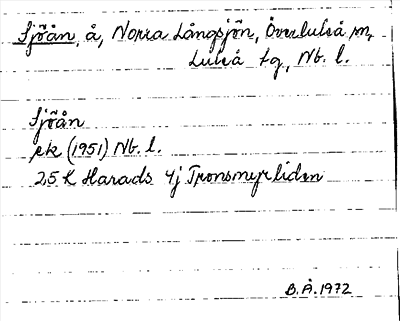 Sjöån, å, Norra Långsjön, Överluleå sn,
Luleå tg., Nb. l.
Sjöån
ek (1951) Nb. l.
25 K Harads 4j Tronsmyrliden
B.Å. 1972